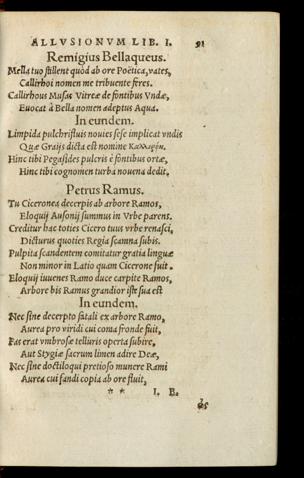 ALLVSIONVM LIB. I. 91
Remigius Bellaqueus.
Mella tuo stillent quòd ab ore Poëtica, vates,
Callirhoi nomen me tribuente feres.
Callirhous Musas Vitreæ de fontibus Vndæ,
Euocat à Bella nomen adeptus Aqua.
In eundem.
Limpida pulchrifluis nouies sese implicat vndis
Quæ Graijs dicta est nomine Καλλιρόη.
Hinc tibi Pegasides pulcris è fontibus ortæ,
Hinc tibi cognomen turba nouena dedit.
Petrus Ramus.
Tu Ciceronea decerpis ab arbore Ramos,
Eloquij Ausonij summus in Vrbe parens.
Creditur hac toties Cicero tuus vrbe renasci,
Dicturus quoties Regia scamna subis.
Pulpita scandentem comitatur gratia linguæ
Non minor in Latio quam Cicerone fuit.
Eloquij iuuenes Ramo duce carpite Ramos,
Arbore bis Ramus grandior iste sua est
In eundem.
Nec sine decerpto fatali ex arbore Ramo,
Aurea pro viridi cui coma fronde fuit,
Fas erat vmbrosæ telluris operta subire,
Aut Stygiæ sacrum limen adire Deæ,
Nec sine doctiloqui pretioso munere Rami
Aurea cui fandi copia ab ore fluit,
* * I. E.